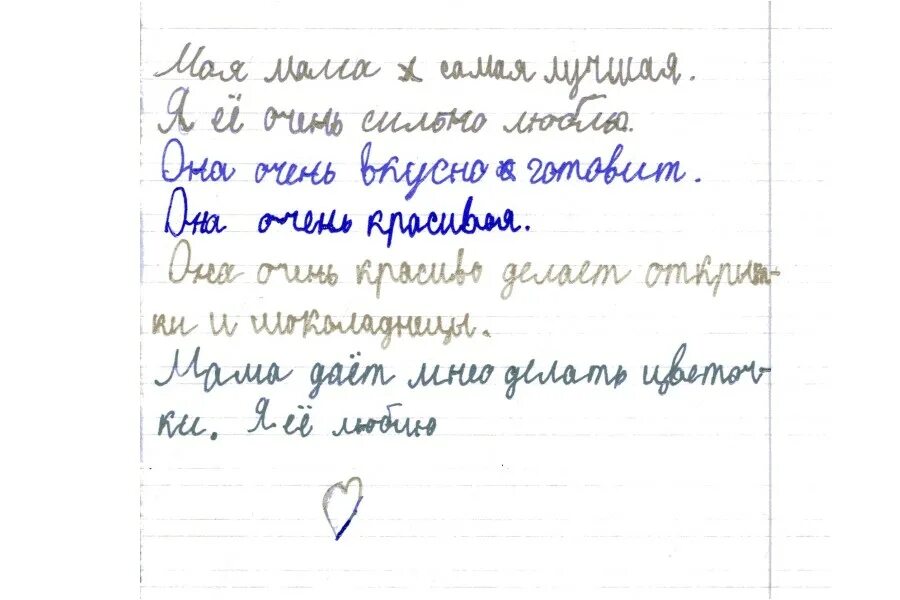 Моя мама самая лучшая.
Я её очень сильно люблю.
Она очень вкусно готовит.
Она очень красивая.
Она очинь красиво делает открыт-
ки и шоколадницы.
Мама даёт мне делать цветоч-
ки. Я её люблю